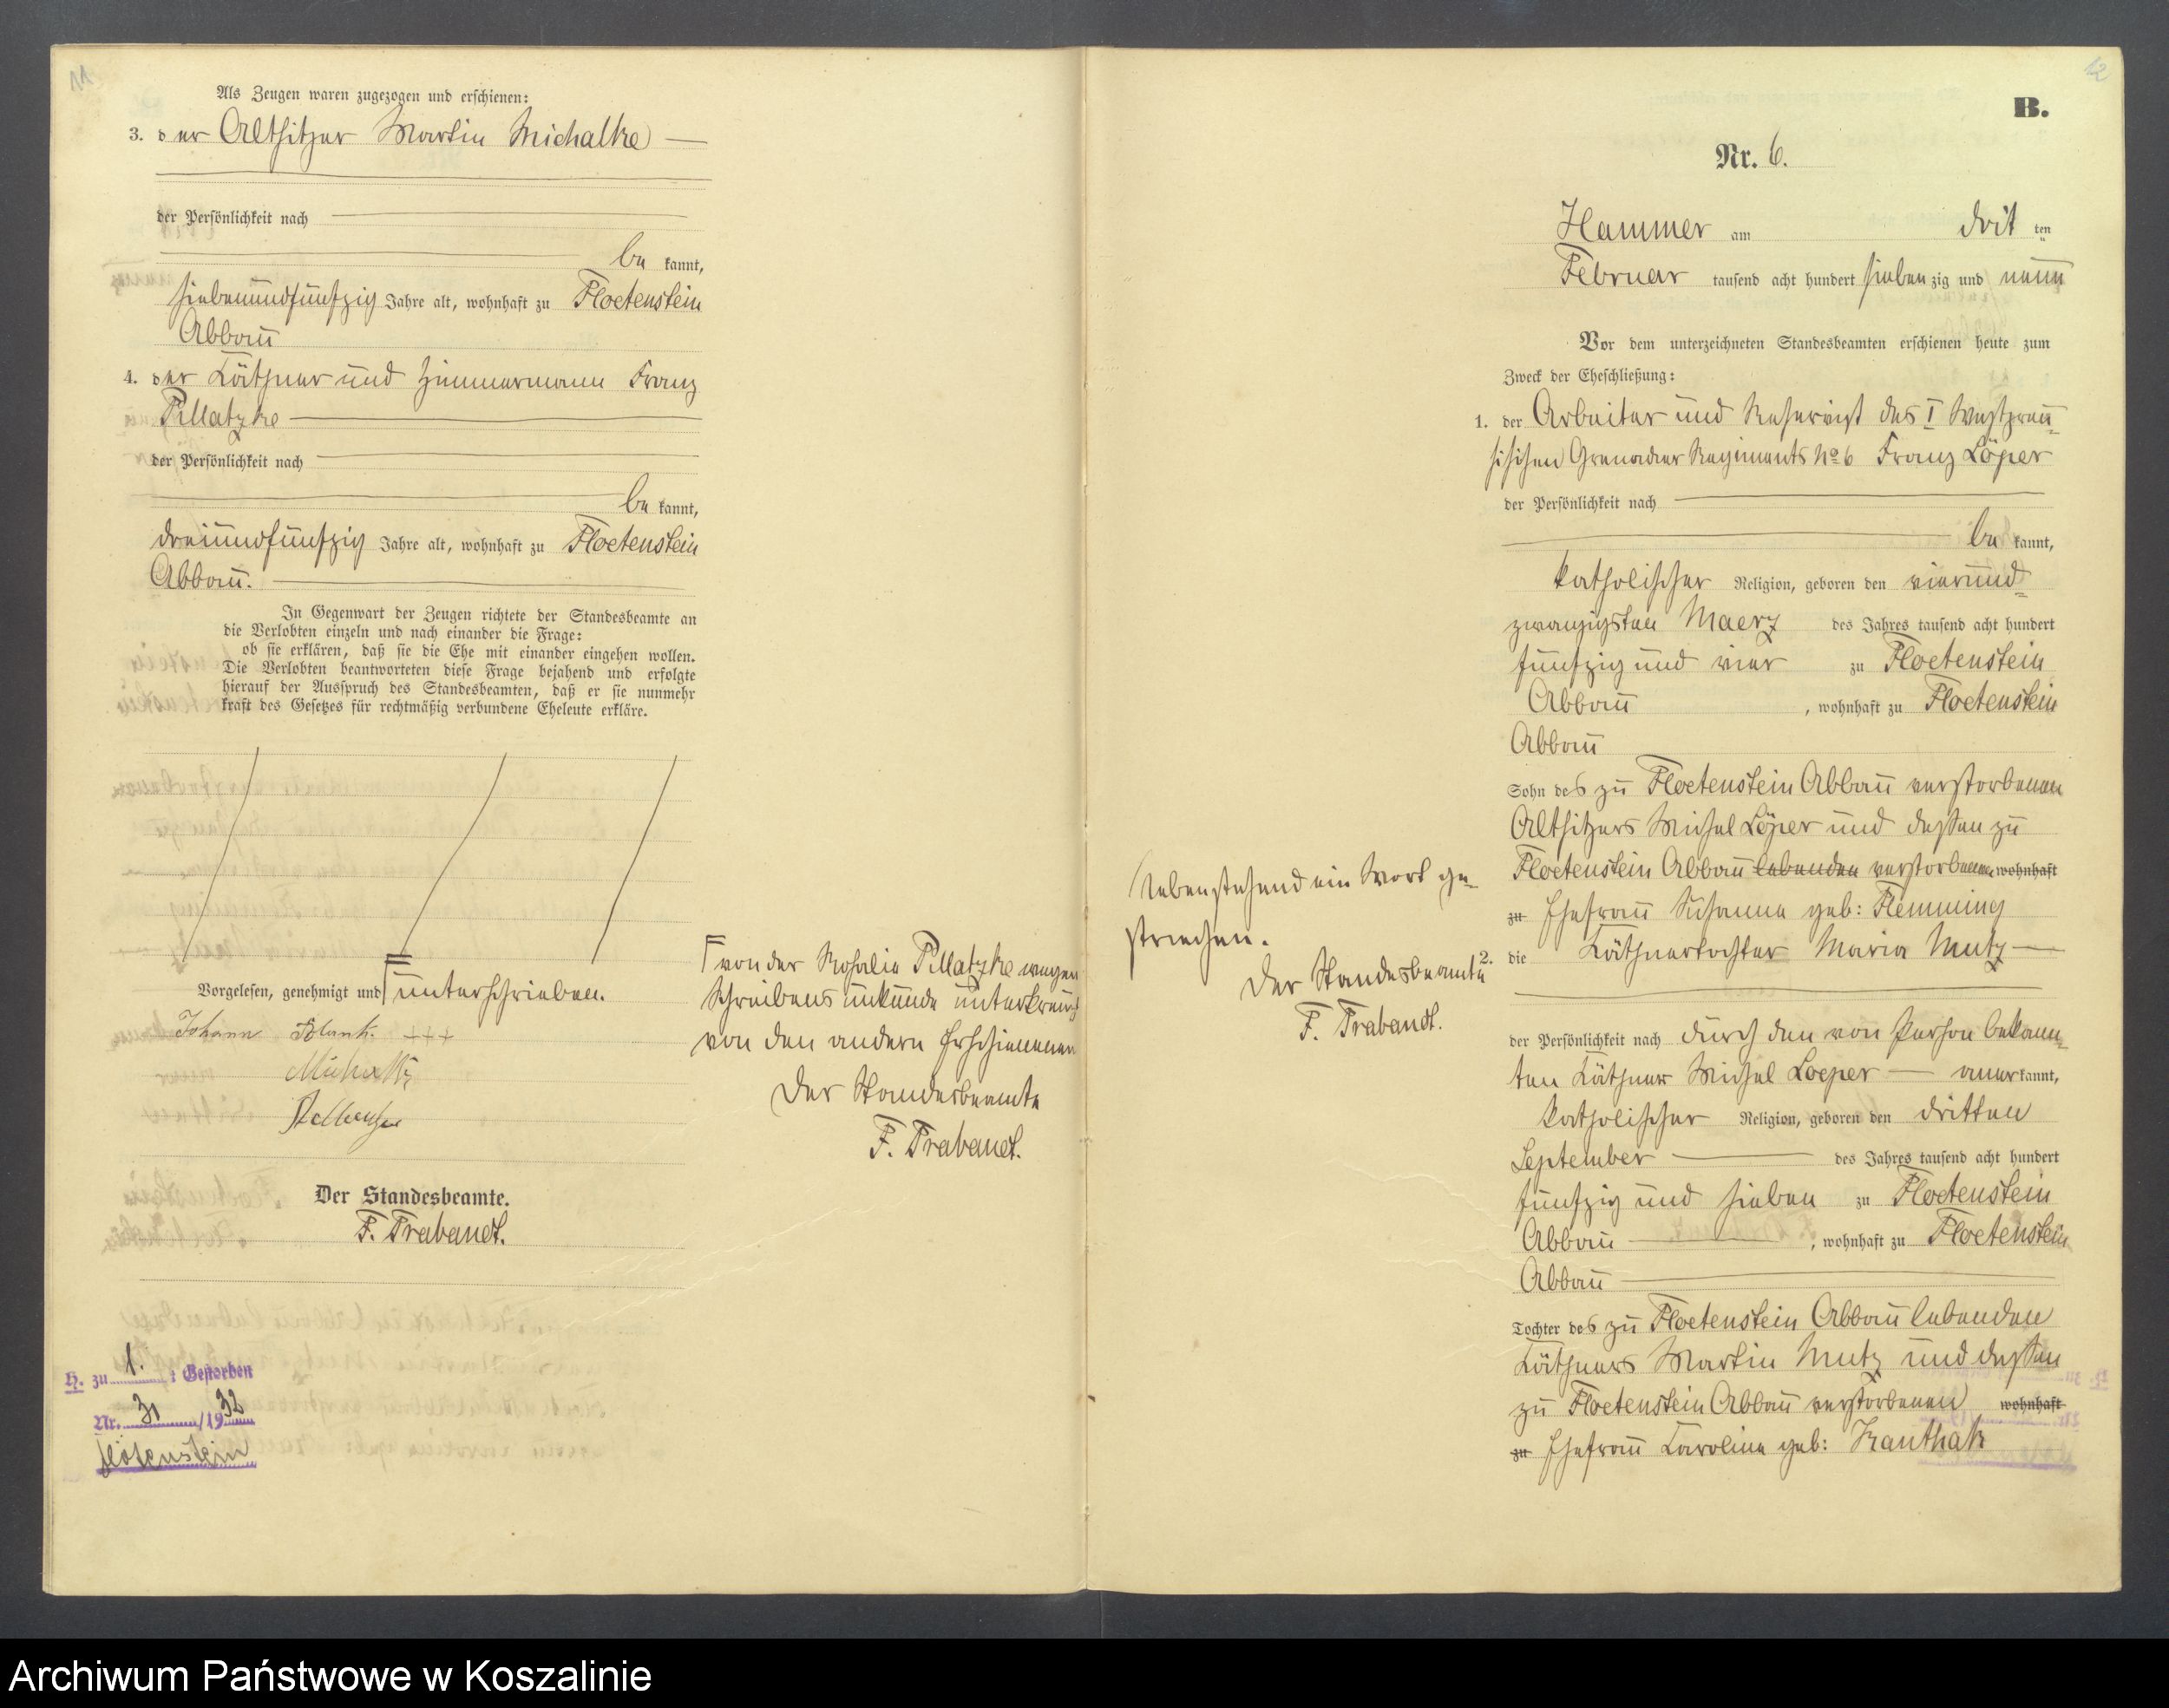 11
Als Zeugen waren zugezogen und erschienen:
3. der Altsitzer Martin Michalke
der Persönlichkeit nach
be kannt,
siebenundfünfzig Jahre alt, wohnhaft zu Floetenstein
Abbau
4. der Käthner und Zimmermann Franz
Pillatzke
der Persönlichkeit nach
be kannt,
dreiundfünfzig Jahre alt, wohnhaft zu Floetenstein
Abbau.
In Gegenwart der Zeugen richtete der Standesbeamte an
die Verlobten einzeln und nach einander die Frage:
ob sie erklären, daß sie die Ehe mit einander eingehen wollen.
Die Verlobten beantworteten diese Frage bejahend und erfolgte
hierauf der Ausspruch des Standesbeamten, daß er sie nunmehr
kraft des Gesetzes für rechtmäßig verbundene Eheleute erkläre.
Vorgelesen, genehmigt und unterschrieben.
Johann +++
Der Standesbeamte.
F. Trabandt.
von der Rosalie Pillatzke wegen
Schreibens unkunde unterkreuzt
von den andern Erschienenen
Der Standesbeamte
F. Trabandt.
H. zu 1. : Gestorben
Nr. 31 /1932
Flötenstein
12
B.
Nr. 6.
Hammer am drit ten
Februar tausend acht hundert sieben zig und neun
Vor dem unterzeichneten Standesbeamten erschienen heute zum
Zweck der Eheschließung:
1. der Arbeiter und Reservist des I Westpreu-
sischen Grenadier Regiments No 6 Franz Löper
der Persönlichkeit nach
be kannt,
katholischer Religion, geboren den vierund-
zwanzigsten Maerz des Jahres tausend acht hundert
fünfzig und vier zu Floetenstein
Abbau , wohnhaft zu Floetenstein
Abbau
Sohn des zu Floetenstein Abbau verstorbenen
Altsitzers Michel Löper und dessen zu
Floetenstein Abbau lebenden verstorbenen wohnhaft
zu Ehefrau Susanna geb: Flemming
2. die Käthnertochter Maria Mutz
der Persönlichkeit nach durch den von Person bekann-
ten Käthner Michel Loeper aner kannt,
katholischer Religion, geboren den dritten
September des Jahres tausend acht hundert
fünfzig und sieben zu Floetenstein
Abbau , wohnhaft zu Floetenstein
Abbau
Tochter des zu Floetenstein Abbau lebenden
Käthners Martin Mutz und dessen
zu Floetenstein Abbau verstorbenen wohnhaft
zu Ehefrau Caroline geb: Kanthak
Nebenstehend ein Wort ge-
strichen.
Der Standesbeamte
F. Trabandt.
Archiwum Państwowe w Koszalinie